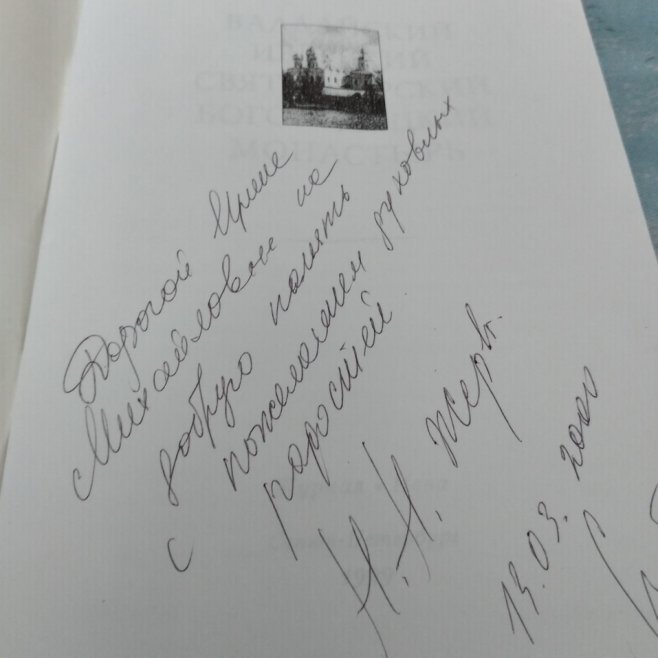 ВАЛДАЙСКИЙ
ИВЕРСКИЙ
СВЯТООЗЕРСКИЙ
БОГОРОДИЦКИЙ
МОНАСТЫРЬ
Дорогой Ирине
Михайловне на
добрую память
с пожеланием духовных
радостей.
Н.Н. Жерв.
13.03. 2000